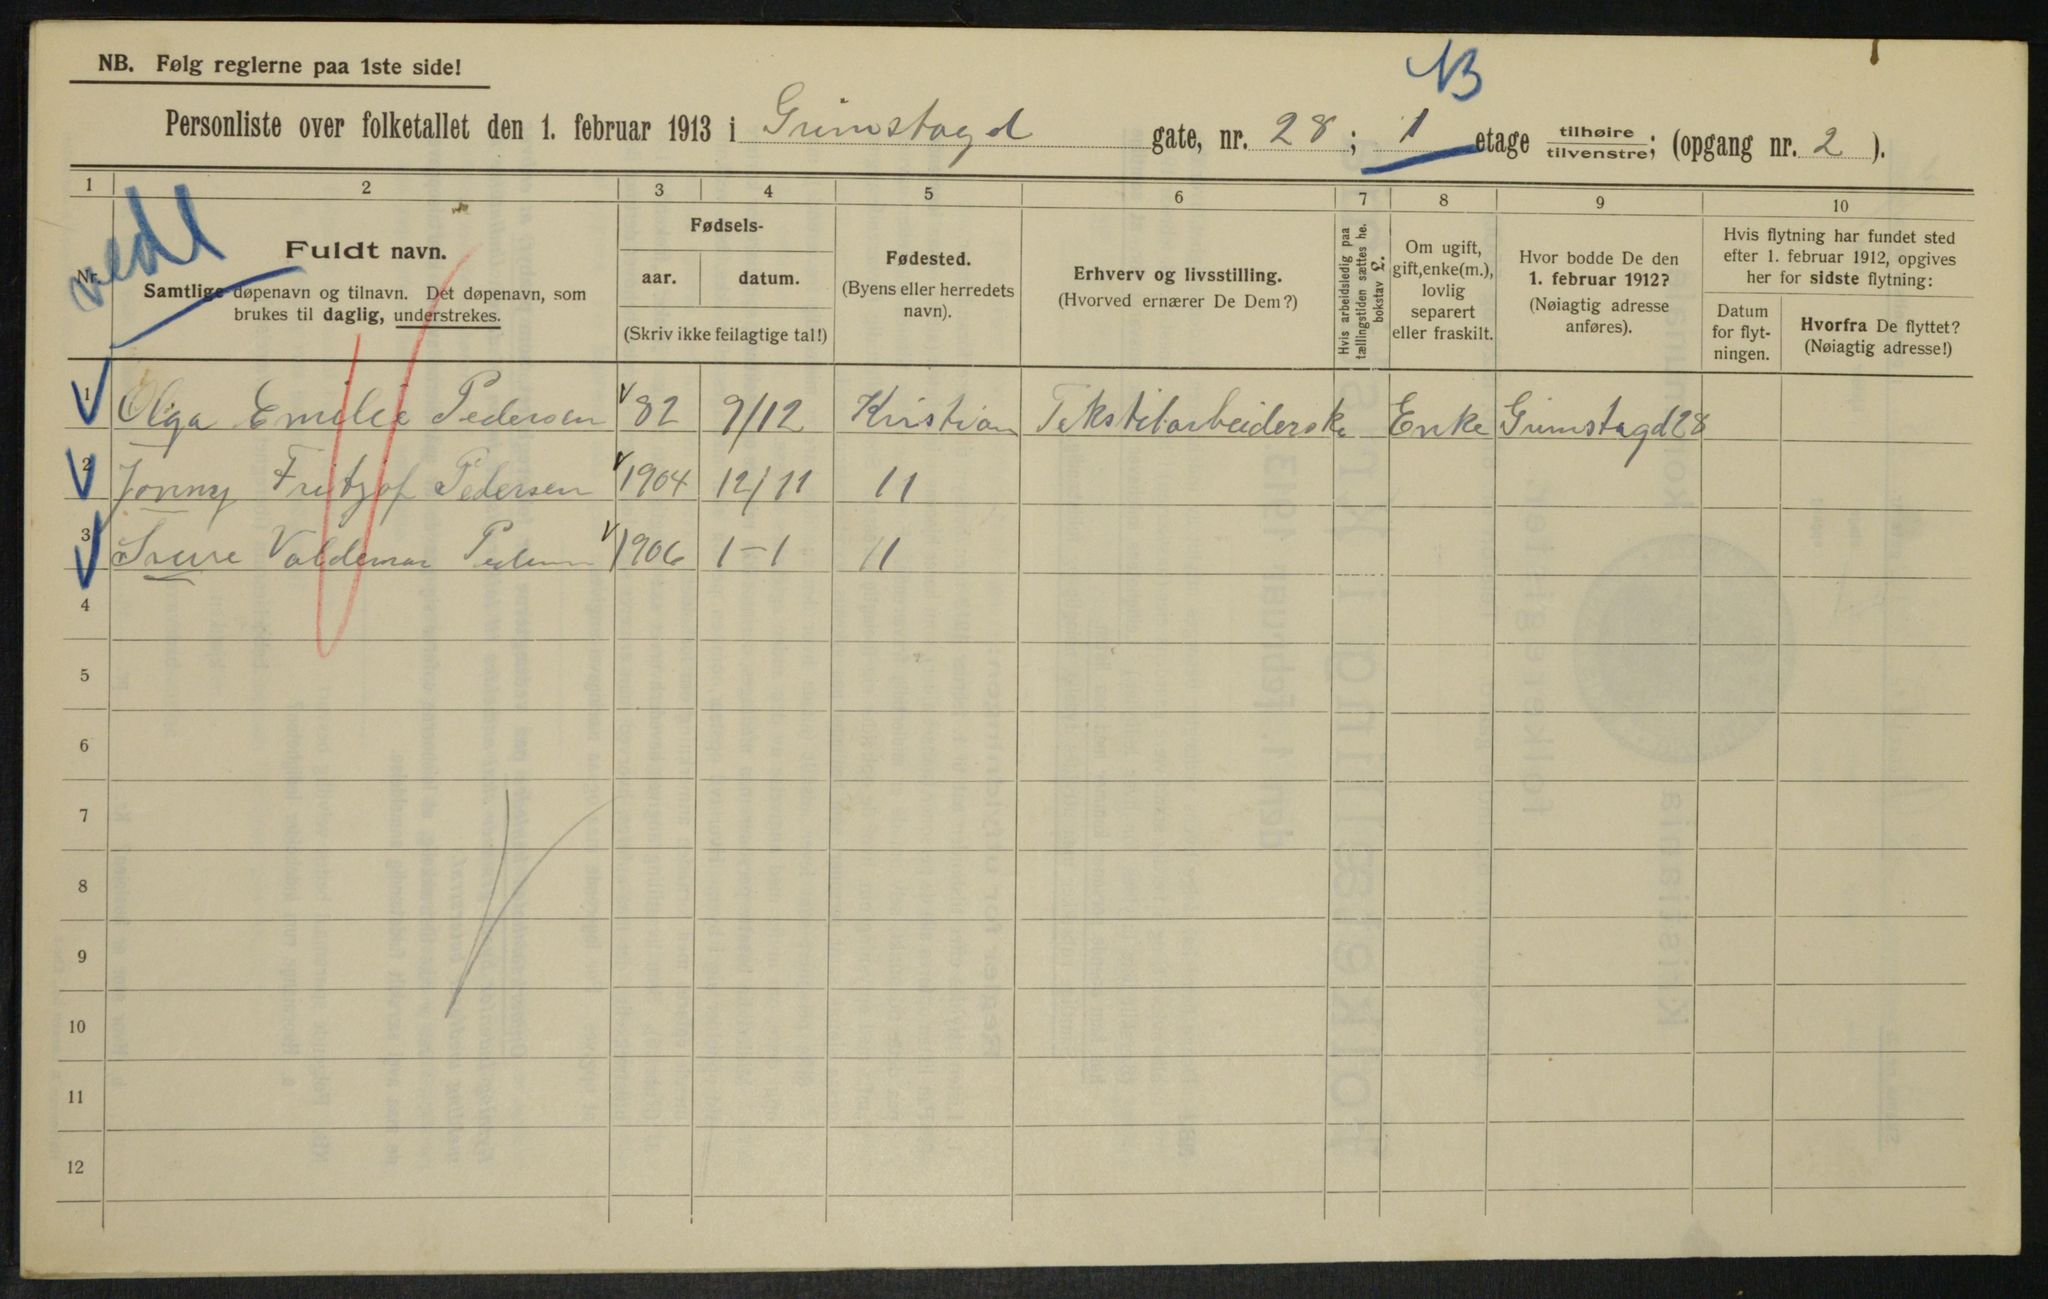 NB. Følg reglerne paa 1ste side!
NB
Personliste over folketallet den 1. februar 1913 i Grimstagd gate, nr. 28 ; 1 etage tilhøire/tilvenstre; (opgang nr. 2 ).
1 2 3 4 5 6 7 8 9 10
vedl
Nr.
Fuldt navn.
Samtlige døpenavn og tilnavn. Det døpenavn, som
brukes til daglig, understrekes.
Fødsels-
aar. datum.
(Skriv ikke feilagtige tal!)
Fødested.
(Byens eller herredets
navn).
Erhverv og livsstilling.
(Hvorved ernærer De Dem?)
Hvis arbeidsledig paa
tællingstiden sættes he.
bokstav £.
Om ugift,
gift, enke(m.),
lovlig
separert
eller fraskilt.
Hvor bodde De den
1. februar 1912?
(Nøiagtig adresse
anføres).
Hvis flytning har fundet sted
efter 1. februar 1912, opgives
her for sidste flytning:
Datum
for flyt-
ningen.
Hvorfra De flyttet?
(Nøiagtig adresse!)
1 Olga Emilie Pedersen 82 9/12 Kristian Tekstilarbeiderske Enke Grimstagd 28
2 Jonny Fritjof Pedersen 1904 12/11 11
3 Sverre Valdemar Pedersen 1906 1-1 11
4
5
6
7
8
9
10
11
12